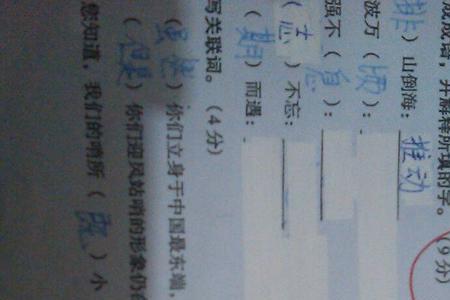 成成语，并解释所填的字。(9分)
排）山倒海：推动
波万（顷）：
强不（息）：
（志）不忘：
（期）而遇：
写关联词。（4分）
（虽然）你们立身于中国最东端，
（但是）你们迎风站哨的形象仍
您知道，我们的哨所（ ）小